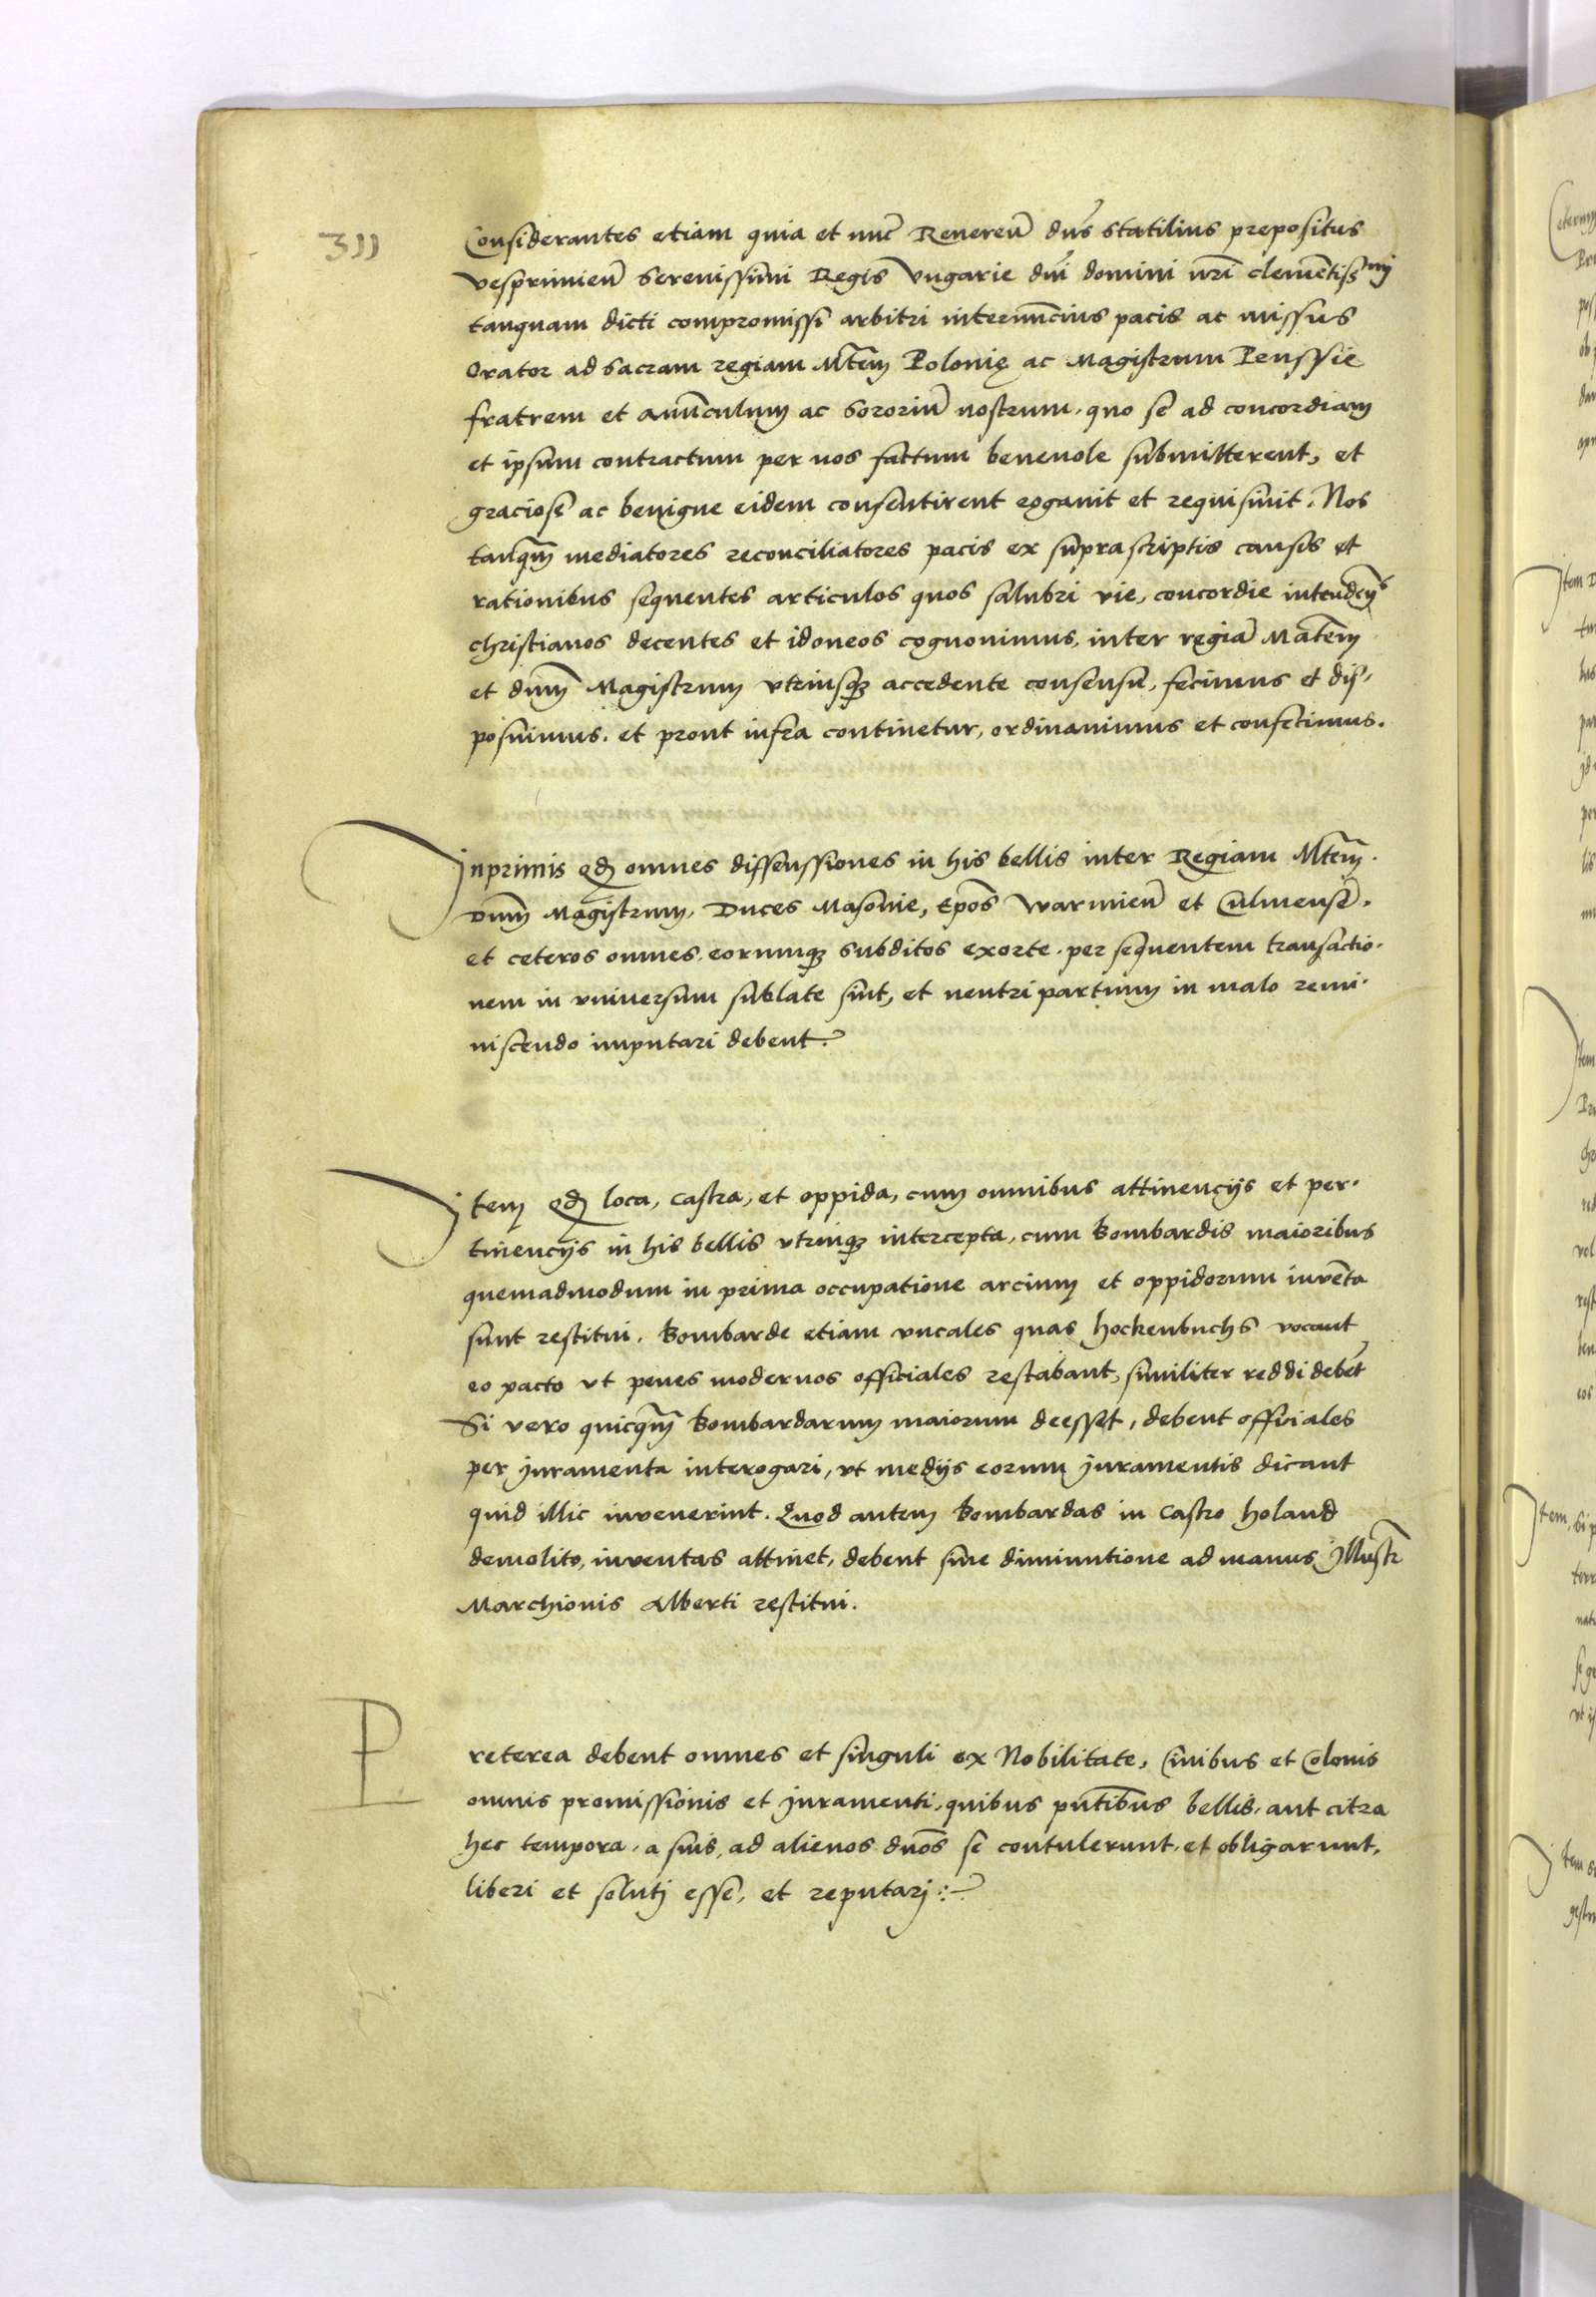 311
Considerantes etiam quia et nuc̄ Reuereñ dn̄s statilius prepositus
vesprimieñ Serenissimi Regis Vngarie dn̄i domini nr̄i clemētissmi
tanquam dicti compromissi arbitri internūcius pacis ac missus
Orator ad sacram regiam Mtem̄ Polonię ac Magistrum Prussie
fratrem et auūculum ac Sororiū nostrum, quo se ad concordiam
et ipsum contractum per nos factum beneuole submitterent, et
graciose ac benigne eidem consentirent rogauit et requisiuit. Nos
tanqm̄ mediatores reconciliatores pacis ex suprascriptis causis et
rationibus sequentes articulos quos salubri vie, concordie intendeñs
christianos decentes et idoneos cognouimus, inter regiā Matem̄
et dnm̄ Magistrum vtriusqz accedente consensu, fecimus et dis,
posuimus. et prout infra continetur, ordinauimus et confecimus.
Inprimis qd̄ omnes dissenssiones in his bellis inter Regiam Mtem̄.
Dnm̄ Magistrum, Duces Masouie, Ep̄os Warmieñ et Culmensē.
et ceteros omnes, eorumqz subditos exorte. per sequentem transactio.
nem in vniuersum sublate sint, et neutri partium in malo remi.
niscendo imputari debent.
Item qd̄ loca, castra, et oppida, cum omnibus attinencijs et per.
tinencijs in his bellis vtrinqz intercepta, cum bombardis maioribus
quemadmodum in prima occupatione arcium et oppidorum inuēta
sunt restitui. Bombarde etiam vncales quas hockenbuchs vocant
eo pacto vt penes modernos officiales restabant, similiter reddi debēt
Si vero quicqm̄ bombardarum maiorum deesset, debent officiales
per juramenta interogari, vt medijs eorum juramentis dicant
quid illic inuenerint. Quod autem bombardas in castro holand
demolito, inuentas attinet, debent sine diminutione ad manus Illustr̄
Marchionis Alberti restitui.
Preterea debent omnes et singuli ex Nobilitate, Ciuibus et Colonis
omnis promissionis et juramenti, quibus pn̄tibus bellis, aut citra
hec tempora, a suis, ad alienos dn̄os se contulerunt, et obligarunt,
liberi et soluti esse, et reputarj :